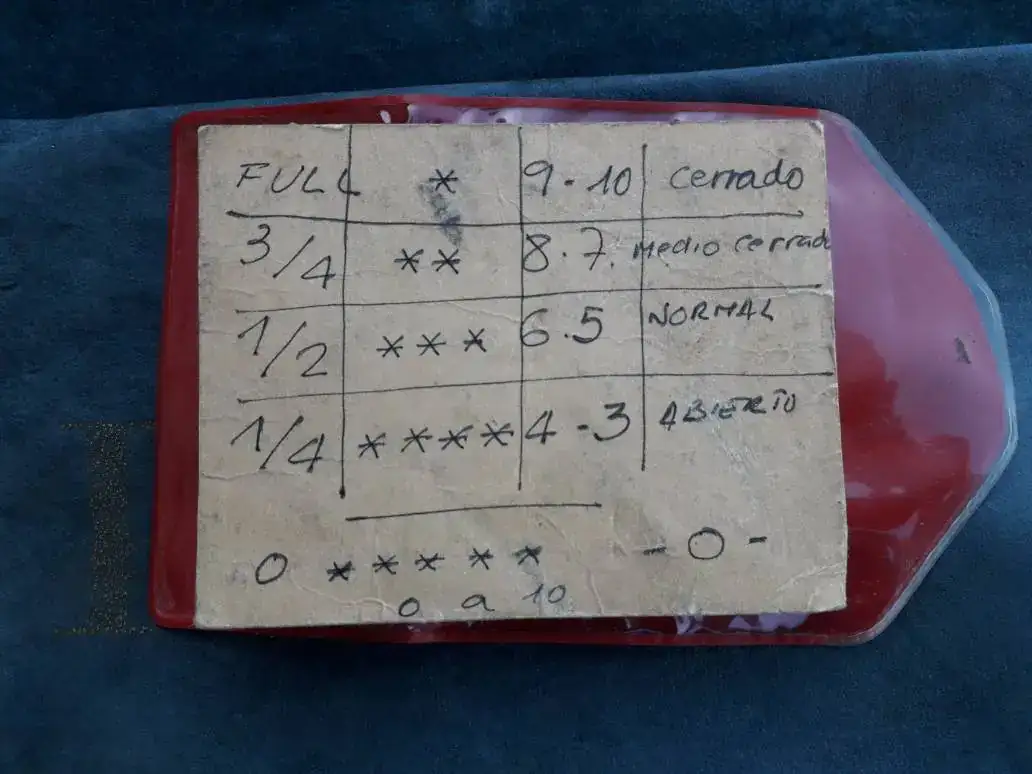 FULL * 9-10 cerrado
3/4 ** 8.7. Medio cerrado
1/2 *** 6.5 NORMAL
1/4 **** 4-3 ABIERTO
0 ***** -0-
0 a 10